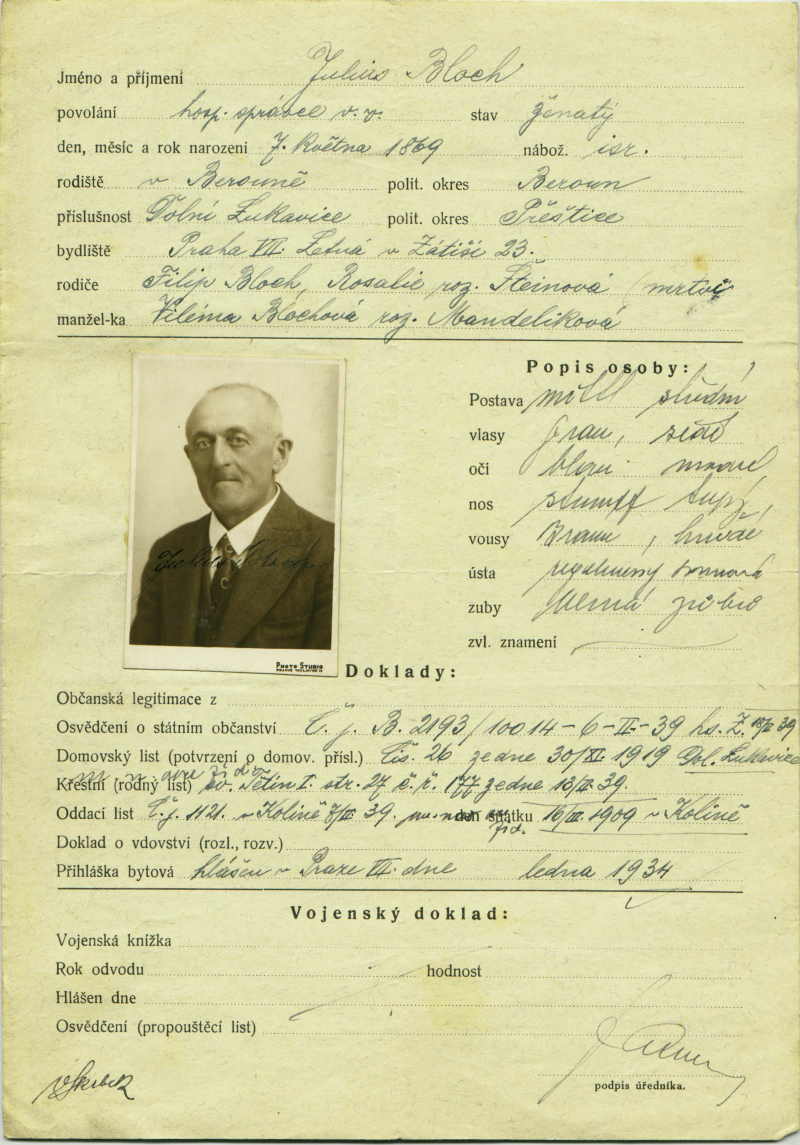 Jméno a příjmení Julius Bloch
povolání hosp. správce v. v. stav ženatý
den, měsíc a rok narození 7. května 1869 nábož. isr.
rodiště v Berouně polit. okres Beroun
příslušnost Dolní Lukavice polit. okres Přeštice
bydliště Praha VII. Letná v Zátiší 23.
rodiče Filip Bloch, Rosalie roz. Steinová /mrtvi
manžel-ka Viléma Blochová roz. Mandelíková
Popis osoby:
Postava mittl střední
vlasy grau, šedé
oči
nos stumpf tupý,
vousy braun, hnědé
ústa
zuby
zvl. znamení
Julius Bloch
PHOTO STUDIO
Doklady:
Občanská legitimace z
Osvědčení o státním občanství Č. j. B. 2193/10014-6-II-39
Domovský list (potvrzení o domov. přísl.) čís. 26 ze dne 30/XI 1919 Dol. Lukavice
Křestní (rodný list) sv. Tetín I. str. 27 č. ř. 177 ze dne
Oddací list Č. j. 1121. v Kolíně 39. den sňatku 1909 v Kolíně
Doklad o vdovství (rozl., rozv.)
Přihláška bytová hlášen v Praze VII. dne ledna 1934
Vojenský doklad:
Vojenská knížka
Rok odvodu hodnost
Hlášen dne
Osvědčení (propouštěcí list)
podpis úředníka.